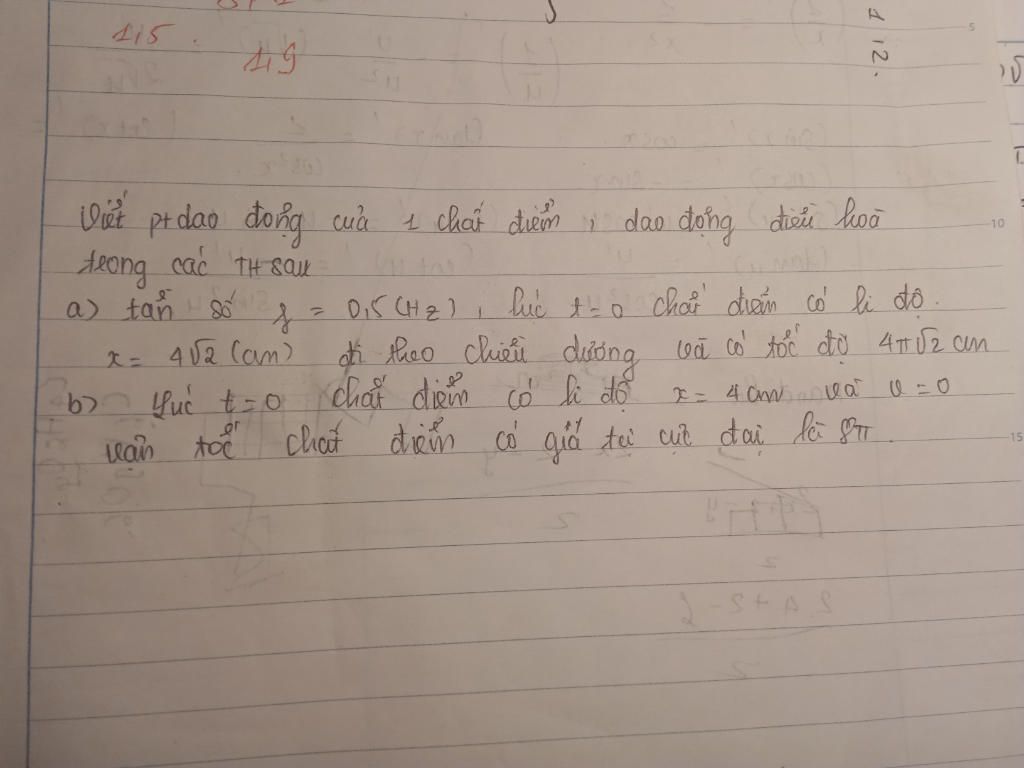 1,5.
1,9
1,2.
Viết pt dao động của 1 chất điểm, dao động điều hoà
trong các TH sau
a) tần số f = 0,5 (Hz), lúc t = 0 chất điểm có li độ.
x = 4√2 (cm) đi theo chiều dương và có tốc độ 4π√2 cm
b) Lúc t = 0 chất điểm có li độ x = 4 cm và v = 0
vận tốc chất điểm có giá trị cực đại là 8π.
5
10
15